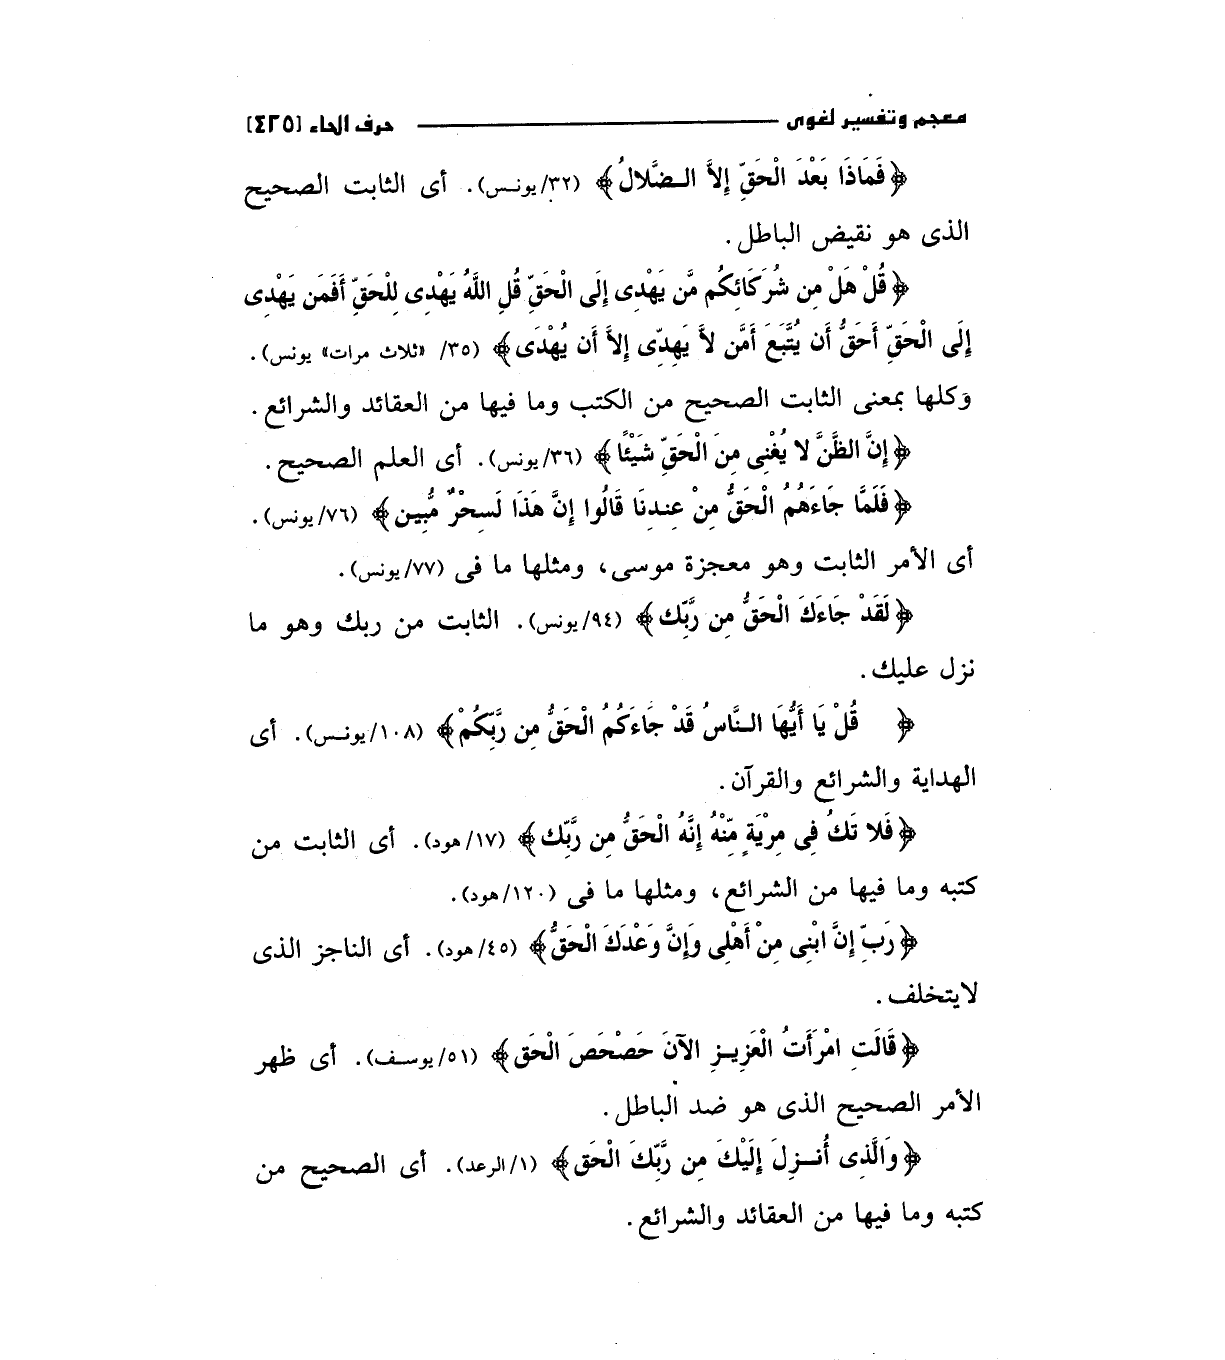 معجم وتفسير لغوى ـــــــــ حرف الحاء [٤٢٥]
﴿فَمَاذَا بَعْدَ الْحَقِّ إِلاَّ الـضَّلالُ﴾ (٣٢/يونـس). أى الثابت الصحيح
الذى هو نقيض الباطل.
﴿قُلْ هَلْ مِن شُرَكَائِكُم مَّن يَهْدِى إِلَى الْحَقِّ قُلِ اللَّهُ يَهْدِى لِلْحَقِّ أَفَمَن يَهْدِى
إِلَى الْحَقِّ أَحَقُّ أَن يُتَّبَعَ أَمَّن لاَّ يَهِدِّى إِلاَّ أَن يُهْدَى﴾ (٣٥/ «ثلاث مرات» يونس).
وكلها بمعنى الثابت الصحيح من الكتب وما فيها من العقائد والشرائع.
﴿إِنَّ الظَّنَّ لا يُغْنِى مِنَ الْحَقِّ شَيْئًا﴾ (٣٦/يونس). أى العلم الصحيح.
﴿فَلَمَّا جَاءَهُمُ الْحَقُّ مِنْ عِندِنَا قَالُوا إِنَّ هَذَا لَسِحْرٌ مُّبِين﴾ (٧٦/يونس).
أى الأمر الثابت وهو معجزة موسى، ومثلها ما فى (٧٧/يونس).
﴿لَقَدْ جَاءَكَ الْحَقُّ مِن رَّبِّك﴾ (٩٤/يونس). الثابت من ربك وهو ما
نزل عليك.
﴿ قُلْ يَا أَيُّهَا الـنَّاسُ قَدْ جَاءَكُمُ الْحَقُّ مِن رَّبِّكُمْ﴾ (١٠٨/يونـس). أى
الهداية والشرائع والقرآن.
﴿فَلا تَكُ فِى مِرْيَةٍ مِّنْهُ إِنَّهُ الْحَقُّ مِن رَّبِّك﴾ (١٧/هود). أى الثابت من
كتبه وما فيها من الشرائع، ومثلها ما فى (١٢٠/هود).
﴿رَبِّ إِنَّ ابْنِى مِنْ أَهْلِى وَإِنَّ وَعْدَكَ الْحَقُّ﴾ (٤٥/هود). أى الناجز الذى
لايتخلف.
﴿قَالَتِ امْرَأَتُ الْعَزِيـزِ الآنَ حَصْحَصَ الْحَق﴾ (٥١/يوسـف). أى ظهر
الأمر الصحيح الذى هو ضد الباطل.
﴿وَالَّذِى أُنـزِلَ إِلَيْكَ مِن رَّبِّكَ الْحَق﴾ (١/الرعد). أى الصحيح من
كتبه وما فيها من العقائد والشرائع.